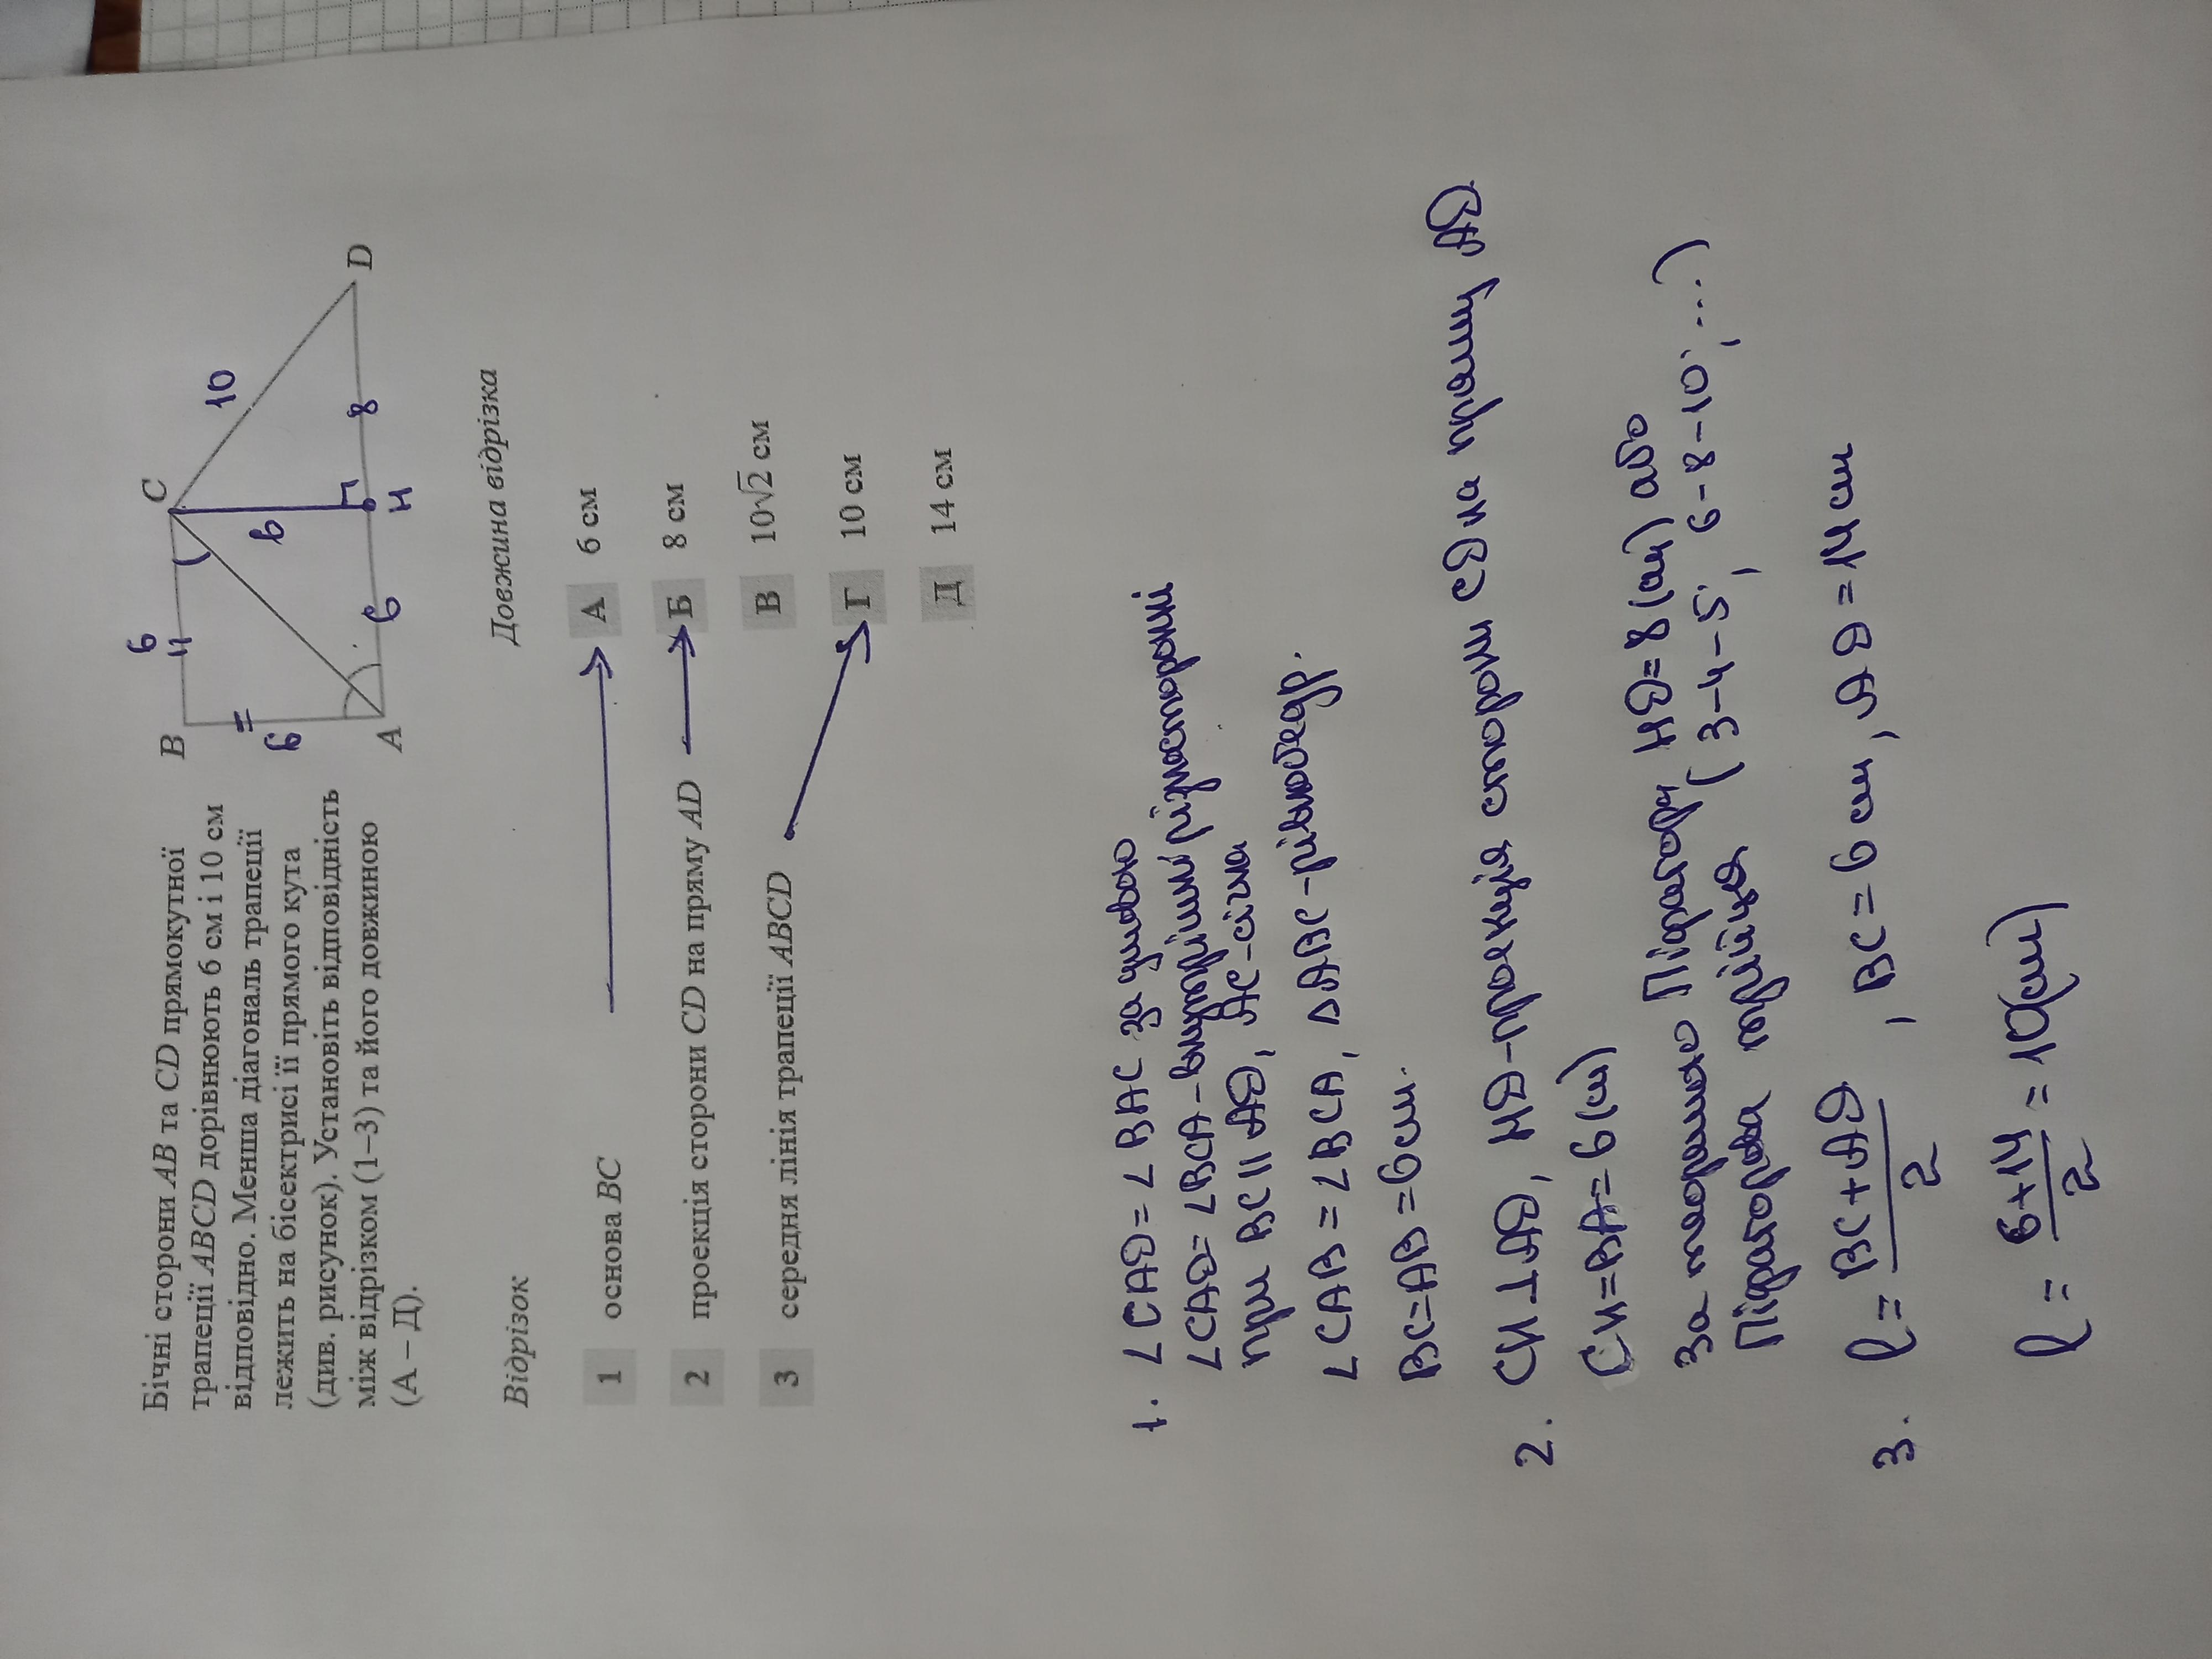 Бічні сторони AB та CD прямокутної
трапеції ABCD дорівнюють 6 см і 10 см
відповідно. Менша діагональ трапеції
лежить на бісектрисі її прямого кута
(див. рисунок). Установіть відповідність
між відрізком (1–3) та його довжиною
(А – Д).
B
6
C
10
6
6
A
6
H
8
D
Відрізок
Довжина відрізка
1 основа BC
2 проекція сторони CD на пряму AD
3 середня лінія трапеції ABCD
А 6 см
Б 8 см
В 10√2 см
Г 10 см
Д 14 см
1. ∠CAD = ∠BAC за умовою
∠CAD = ∠BCA - внутрішні різносторонні
при BC || AD, AC - січна
∠CAB = ∠BCA, △ABC - рівнобедр.
BC = AB = 6 см.
2. CH ⊥ AD, HD - проекція сторони CD на пряму AD
CH = BA = 6 (см)
За теоремою Піфагора HD = 8 (см) або
Піфагорова трійка (3-4-5; 6-8-10; ...)
3. l = BC + AD / 2 , BC = 6 см, AD = 14 см
l = 6 + 14 / 2 = 10 (см)